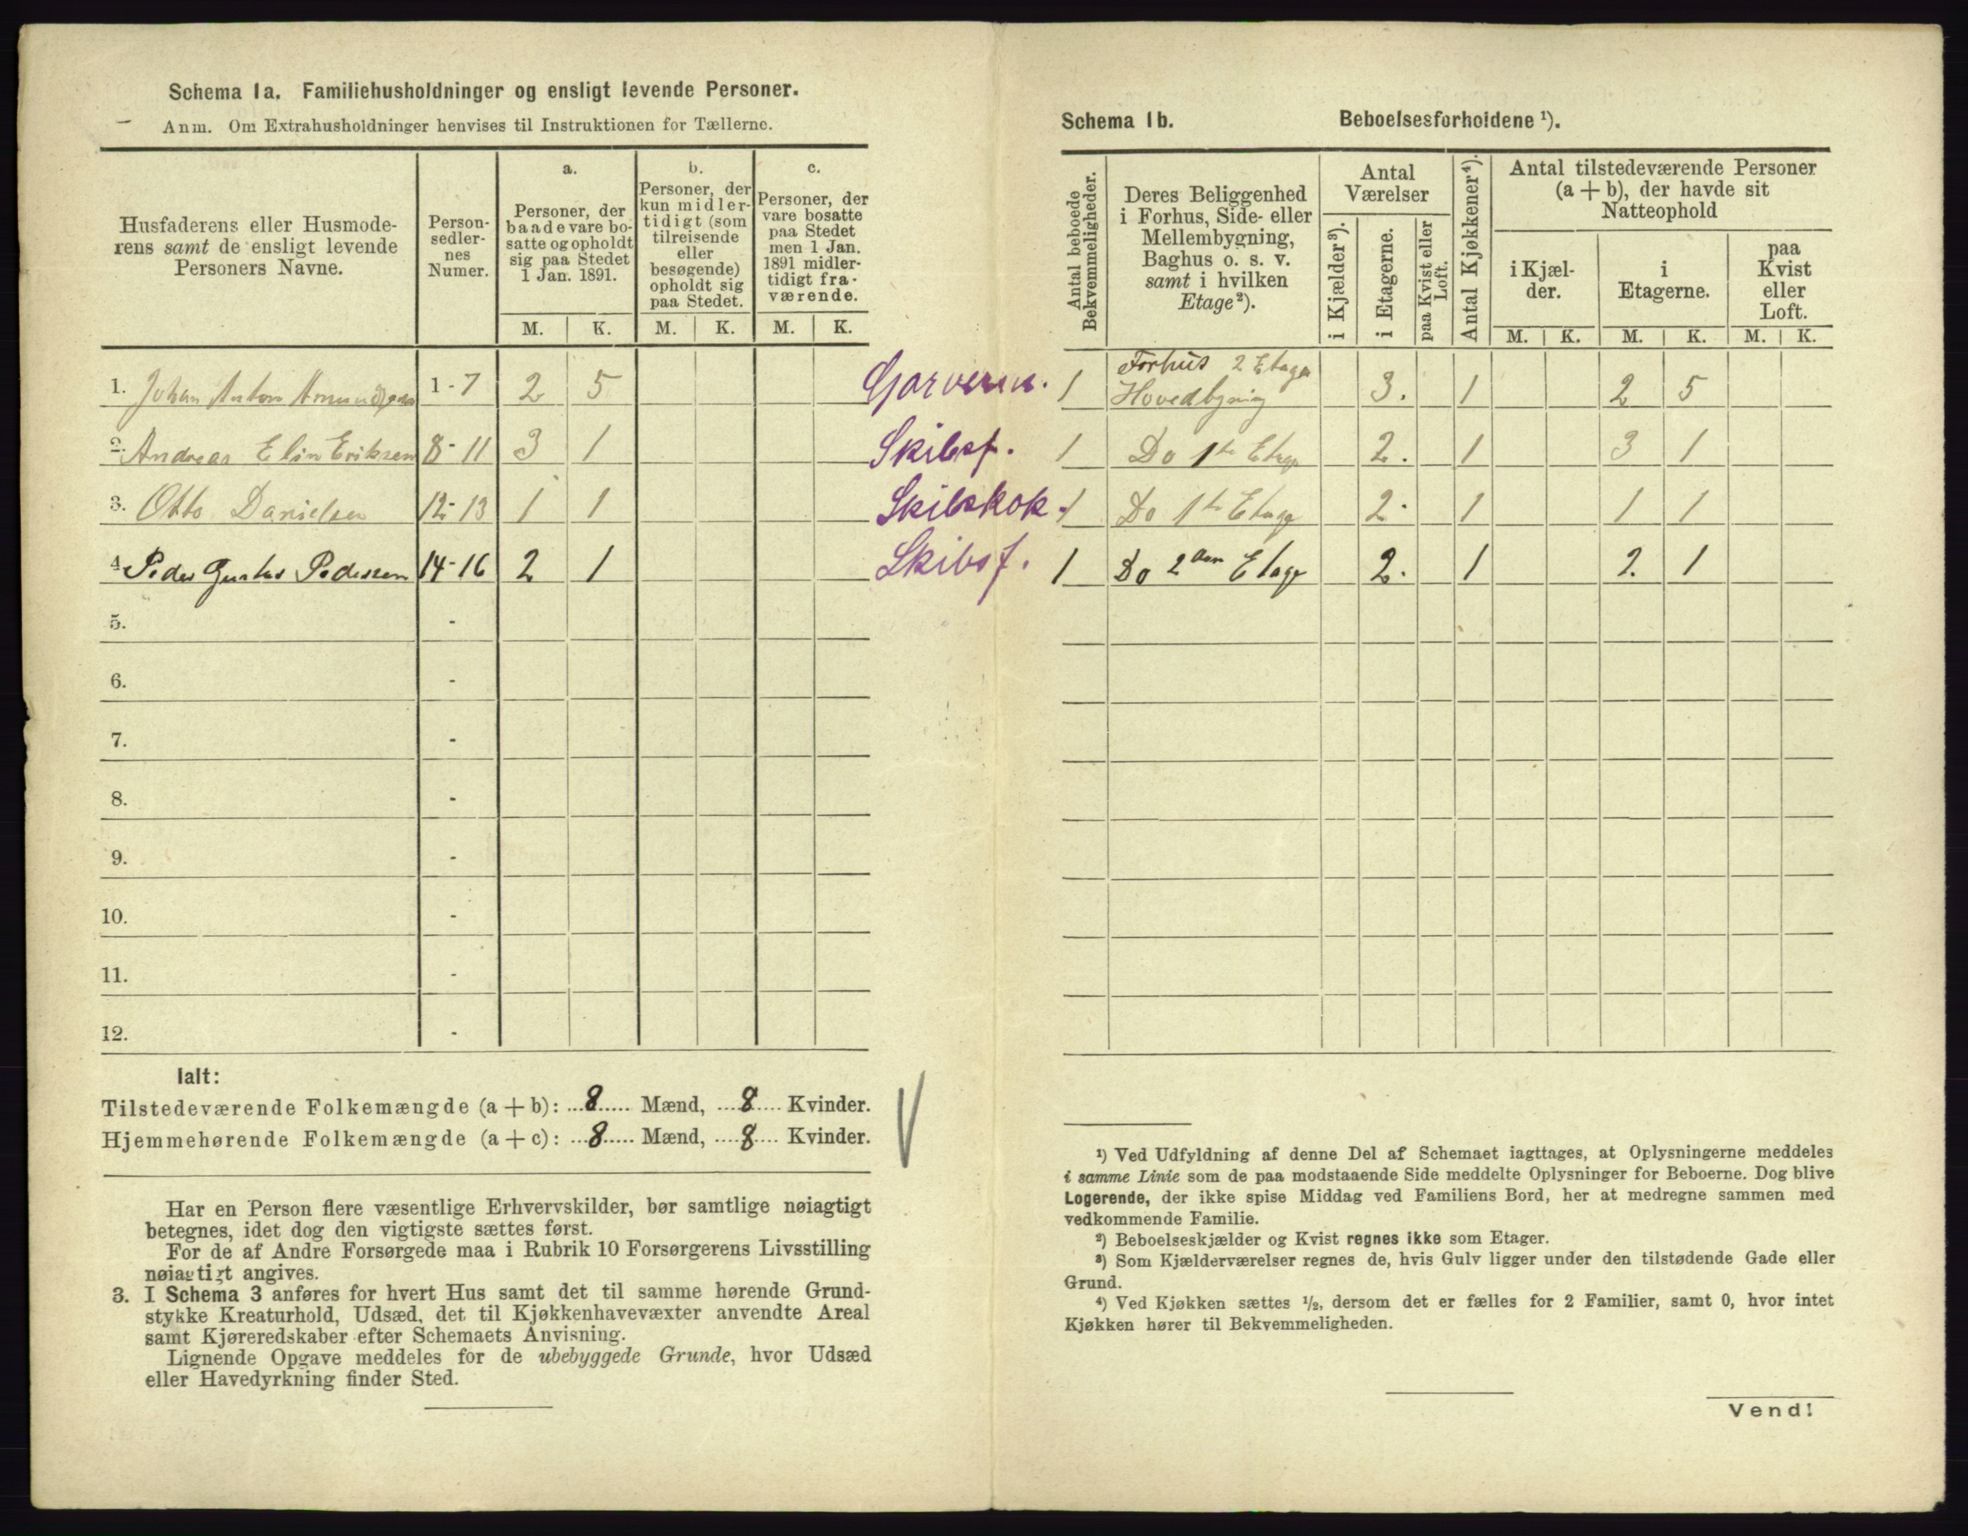 Schema 1a. Familiehusholdninger og ensligt levende Personer.
Anm. Om Extrahusholdninger henvises til Instruktionen for Tællerne.
Husfaderens eller Husmode-
rens samt de ensligt levende
Personers Navne.
Person-
sedler-
nes
Numer.
a.
Personer, der
baade vare bo-
satte og opholdt
sig paa Stedet
1 Jan. 1891.
b.
Personer, der
kun midler-
tidigt (som
tilreisende
eller
besøgende)
opholdt sig
paa Stedet.
c.
Personer, der
vare bosatte
paa Stedet
men 1 Jan.
1891 midler-
tidigt fra-
værende.
M. K. M. K. M. K.
1. Johan Anton Amundsen 1-7 2 5 Garversv.
2. Andreas Elin Eriksen 8-11 3 1 Skibsf.
3. Otto Danielsen 12-13 1 1 Skibskok.
4. Peder Gustav Pedersen 14-16 2 1 Skibsf.
5. -
6. -
7. -
8. -
9. -
10. -
11. -
12. -
Ialt:
Tilstedeværende Folkemængde (a + b): 8 Mænd, 8 Kvinder.
Hjemmehørende Folkemængde (a + c): 8 Mænd, 8 Kvinder.
Har en Person flere væsentlige Erhvervskilder, bør samtlige nøiagtigt
betegnes, idet dog den vigtigste sættes først.
For de af Andre Forsørgede maa i Rubrik 10 Forsørgerens Livsstilling
nøiagtigt angives.
3. I Schema 3 anføres for hvert Hus samt det til samme hørende Grund-
stykke Kreaturhold, Udsæd, det til Kjøkkenhavevæxter anvendte Areal
samt Kjøreredskaber efter Schemaets Anvisning.
Lignende Opgave meddeles for de ubebyggede Grunde, hvor Udsæd
eller Havedyrkning finder Sted.
Schema 1b. Beboelsesforholdene ¹).
Antal beboede
Bekvemmeligheder.
Deres Beliggenhed
i Forhus, Side- eller
Mellembygning,
Baghus o. s. v.
samt i hvilken
Etage²).
Antal
Værelser
i Kjælder³).
i Etagerne.
paa Kvist eller
Loft.
Antal Kjøkkener⁴).
Antal tilstedeværende Personer
(a + b), der havde sit
Natteophold
i Kjæl-
der.
i
Etagerne.
paa
Kvist
eller
Loft.
M. K. M. K. M. K.
Forhus 2 Etager
1 Hovedbygning 3. 1 2 5
1 Do 1te Etage 2. 1 3 1
1 Do 1te Etage 2. 1 1 1
1 Do 2den Etage 2. 1 2. 1
¹) Ved Udfyldning af denne Del af Schemaet iagttages, at Oplysningerne meddeles
i samme Linie som de paa modstaaende Side meddelte Oplysninger for Beboerne. Dog blive
Logerende, der ikke spise Middag ved Familiens Bord, her at medregne sammen med
vedkommende Familie.
²) Beboelseskjælder og Kvist regnes ikke som Etager.
³) Som Kjælderværelser regnes de, hvis Gulv ligger under den tilstødende Gade eller
Grund.
⁴) Ved Kjøkken sættes ½, dersom det er fælles for 2 Familier, samt 0, hvor intet
Kjøkken hører til Bekvemmeligheden.
Vend!